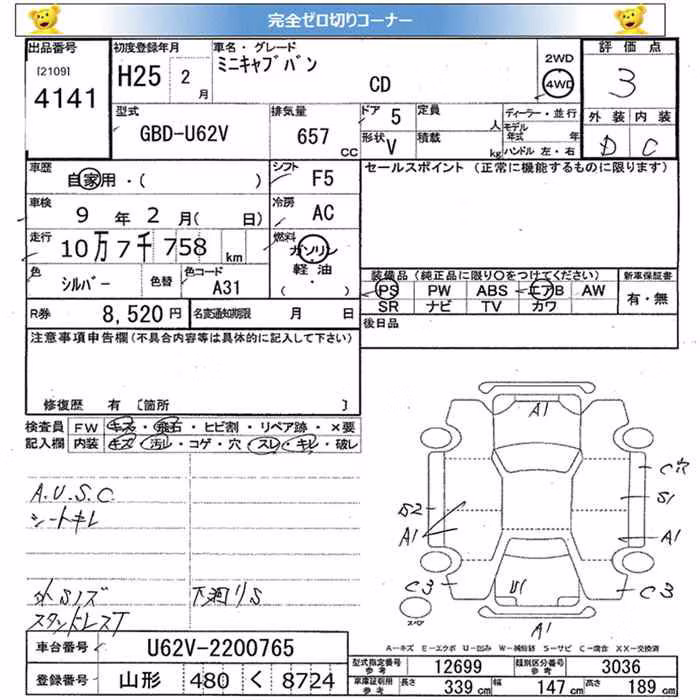 完全ゼロ切りコーナー
出品番号 初度登録年月 車名・グレード 評価点
[2109] 4141 H25 2月 ミニキャブバン CD 2WD 4WD 3
型式 排気量 ドア 5 定員 人 ディーラー・並行 外装 内装
GBD-U62V 657 CC 形状 V 積載 kg モデル年式 年 ハンドル 左・右 D C
車歴 自家用・( ) シフト F5 セールスポイント (正常に機能するものに限ります)
車検 9年 2月( 日) 冷房 AC
走行 10万7千758 km 燃料 ガソリン 軽油 ・ ( )
色 シルバー 色替 色コード A31
装備品 (純正品に限り○をつけてください) 新車保証書
PS PW ABS エアB AW 有・無
SR ナビ TV カワ
R券 8,520円 名変通知期限 月 日 後日品
注意事項申告欄(不具合内容等は具体的に記入して下さい)
修復歴 有 [箇所 ]
検査員 FW キズ・飛石・ヒビ割・リペア跡・×要
記入欄 内装 キズ・汚レ・コゲ・穴・スレ・キレ・破レ
A.U.S.C
シートキレ
外Sノズ 下廻りS
スタットレスT
A1
C穴
S2 S1
A1 A1
C3 U1 C3
スペア A1
A-キズ E-エクボ U-凹み W-補修跡 S-サビ C-腐食 XX-交換済
車台番号 U62V-2200765
登録番号 山形 480 く 8724
型式指定番号 参考 12699 類別区分番号 参考 3036
車庫証明用 参考 長さ 339cm 幅 147cm 高さ 189cm